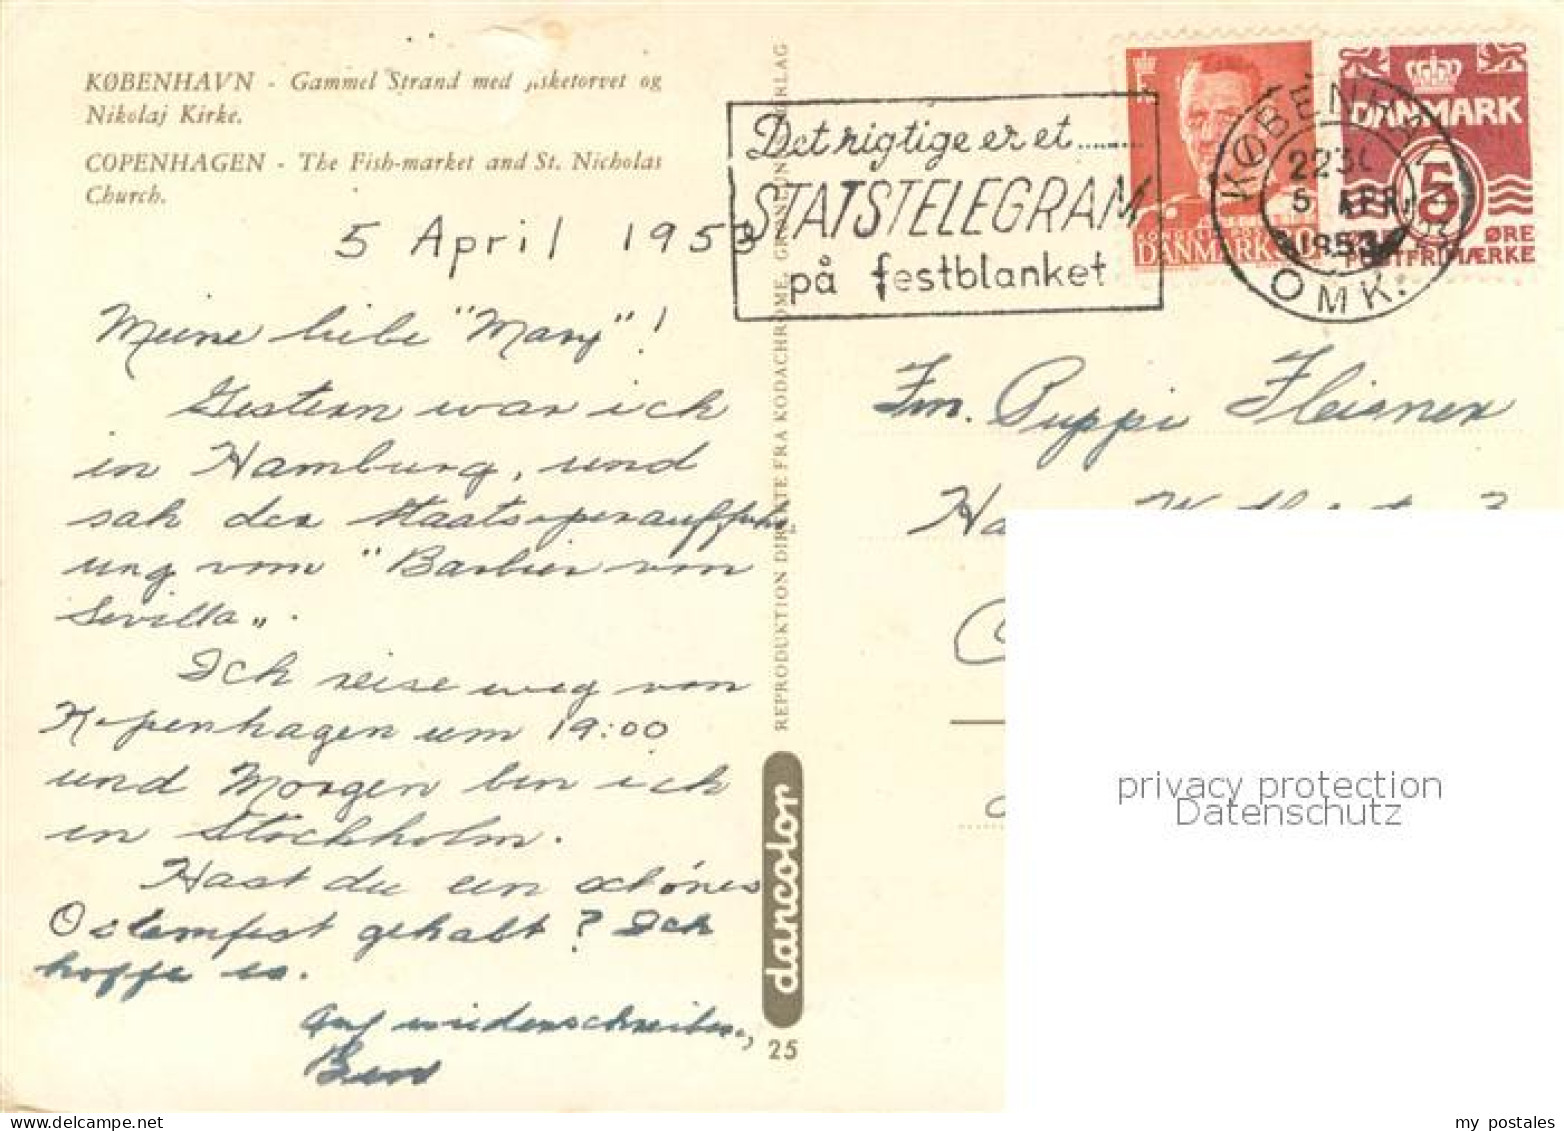 KØBENHAVN - Gammel Strand med fisketorvet og
Nikolaj Kirke.
COPENHAGEN - The Fish-market and St. Nicholas
Church.
5 April 1953
Meine liebe "Mary"!
Gestern war ich
in Hamburg, und
sah der Staatsoperaufführ
ung vom "Barbier von
Sevilla".
Ich reise weg von
Kopenhagen um 19:00
und Morgen bin ich
in Stockholm.
Hast du ein schönes
Osternfest gehabt? Ich
hoffe es.
Auf wiederschreiben,
REPRODUKTION DIREKTE FRA KODACHROME, GRØNLUNDS FORLAG
dancolor
25
Det rigtige er et........
STATSTELEGRAM
på festblanket
KØBENHAVN
2230
5 APR.
1953
OMK.
DANMARK
DANMARK
5
ØRE
POSTFRIMÆRKE
Puppi
privacy protection
Datenschutz
my postales